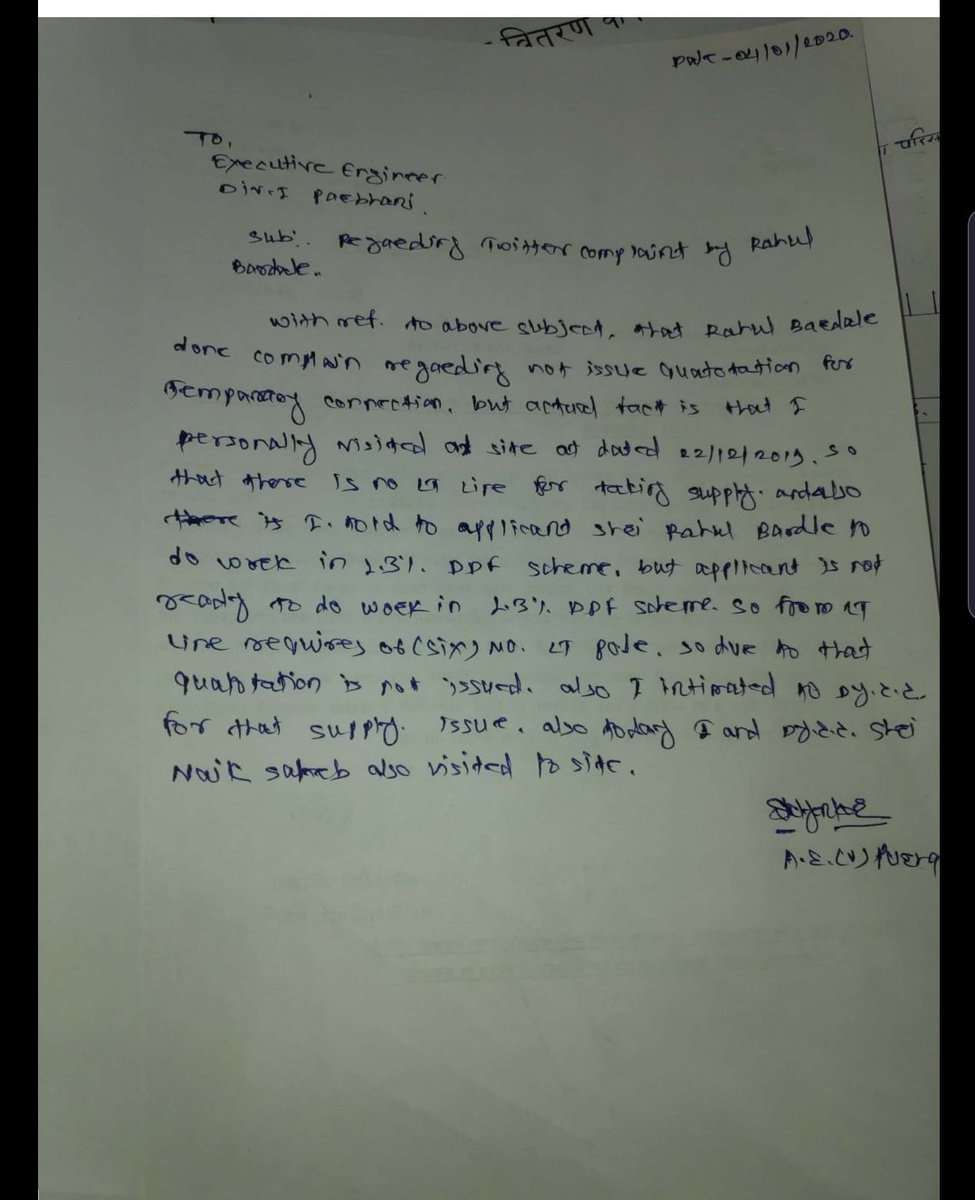 - वितरण
Date - 04/01/2020.
परिस
To,
Executive Engineer
Div. I Paebhani.
Sub:. Regaeding Twitter complaint by Rahul
Bardale.
With ref. to above subject, that Rahul Baedale
done complain regaeding not issue quatotation for
Temparary connection. but actual fact is that I
personally visited at site at dated 22/12/2019. so
that there is no LT Line for taking supply. and also
is I. told to applicant Shri Rahul Bardle to
do work in 1.3%. DDF scheme. but applicant is not
ready to do work in 1.3%. DDF scheme. so from LT
Line requires 06 (six) No. LT pole. so due to that
quatotation is not issued. also I intimated to Dy.E.E.
for that supply. issue. also today I and Dy.E.E. Shri
Naik saheb also visited to site.
A.E.(U)